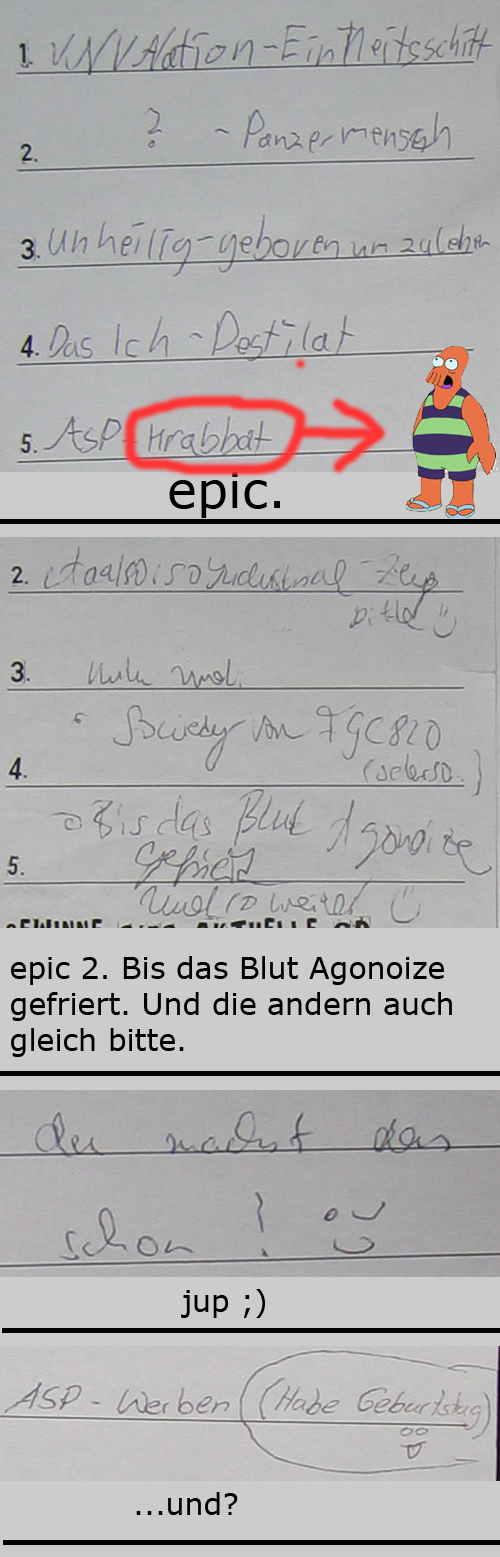 1. VNV Nation - Einheitsschitt
2. ? - Panzermensch
3. Unheilig - geboren um zu leben
4. Das Ich - Destilat
5. ASP - Krabbat
epic.
2.
bitte
3.
von FGC820
4.
Bis das Blut Agonoize
5. gefriert
Und so weiter
epic 2. Bis das Blut Agonoize
gefriert. Und die andern auch
gleich bitte.
du machst das
schon !
jup ;)
ASP - Werben (Habe Geburtstag)
...und?